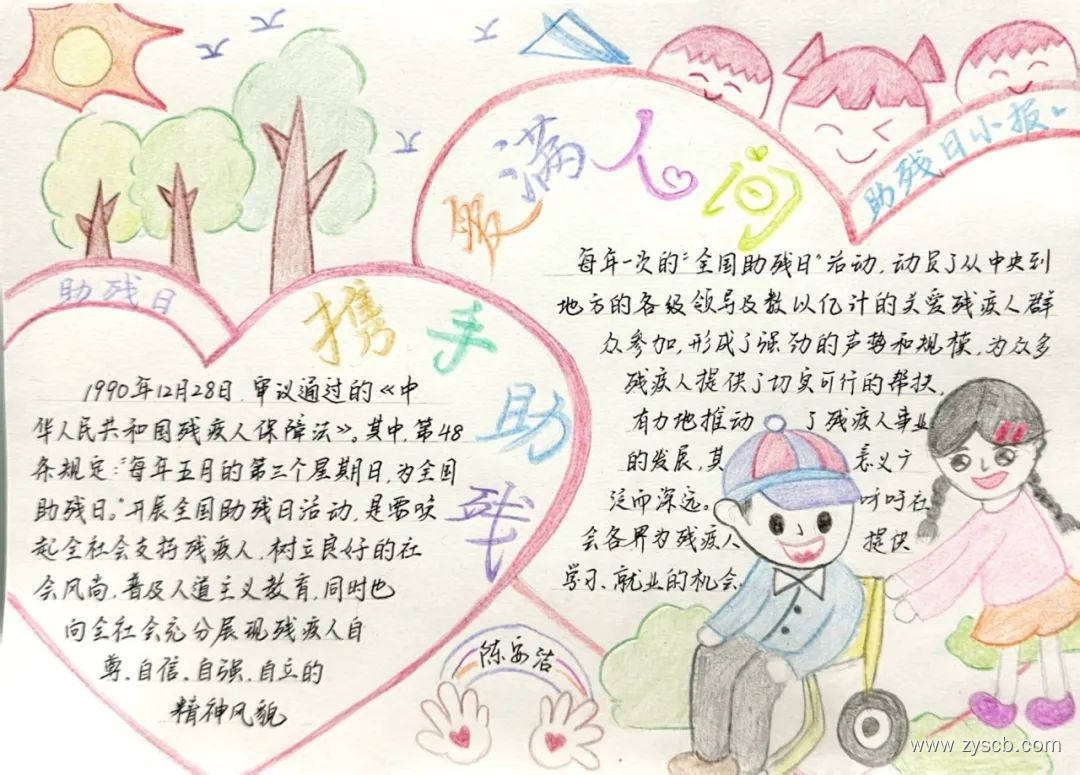 爱满人间
助残日小报
助残日
携手助残
1990年12月28日,审议通过的《中
华人民共和国残疾人保障法》。其中,第48
条规定:"每年五月的第三个星期日,为全国
助残日。"开展全国助残日活动,是需唤
起全社会支持残疾人,树立良好的社
会风尚,普及人道主义教育,同时也
向全社会充分展现残疾人自
尊、自信、自强、自立的
精神风貌
每年一次的"全国助残日"活动,动员了从中央到
地方的各级领导及数以亿计的关爱残疾人群
众参加,形成了强劲的声势和规模,为众多
残疾人提供了切实可行的帮扶,
有力地推动 了残疾人事业
的发展,其 意义广
泛而深远。 呼吁社
会各界为残疾人 提供
学习、就业的机会
陈安洁
www.zyscb.com